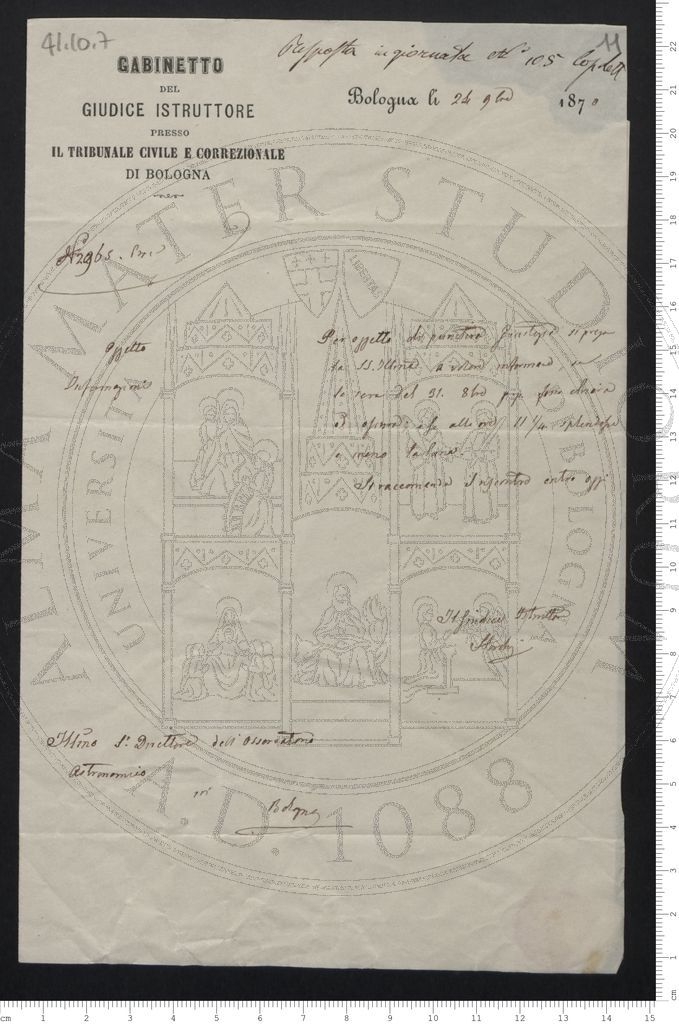 41.10.7
11
Risposta in giornata al N° 105
GABINETTO
DEL
GIUDICE ISTRUTTORE
PRESSO
IL TRIBUNALE CIVILE E CORREZIONALE
DI BOLOGNA
Bologna li 24 9bre 1870
N° 2965.
Oggetto
Informazioni
Per oggetto di punitiva Giustizia si prega
la SS. Illma a voler informare se
la sera del 31. 8bre p.p. fosse chiara
od oscura: e se alle ore 11 1/4 splendesse
o meno la luna.
Si raccomanda il riscontro entro oggi
Il Giudice Istruttore
Illmo Sr. Direttore dell'Osservatorio
Astronomico
in
Bologna
ALMA MATER STUDIORUM
UNIVERSITÀ BOLOGNA
LIBERTAS
A.D. 1088
cm 1 2 3 4 5 6 7 8 9 10 11 12 13 14 15
22
21
20
19
18
17
16
15
14
13
12
11
10
9
8
7
6
5
4
3
2
1
cm